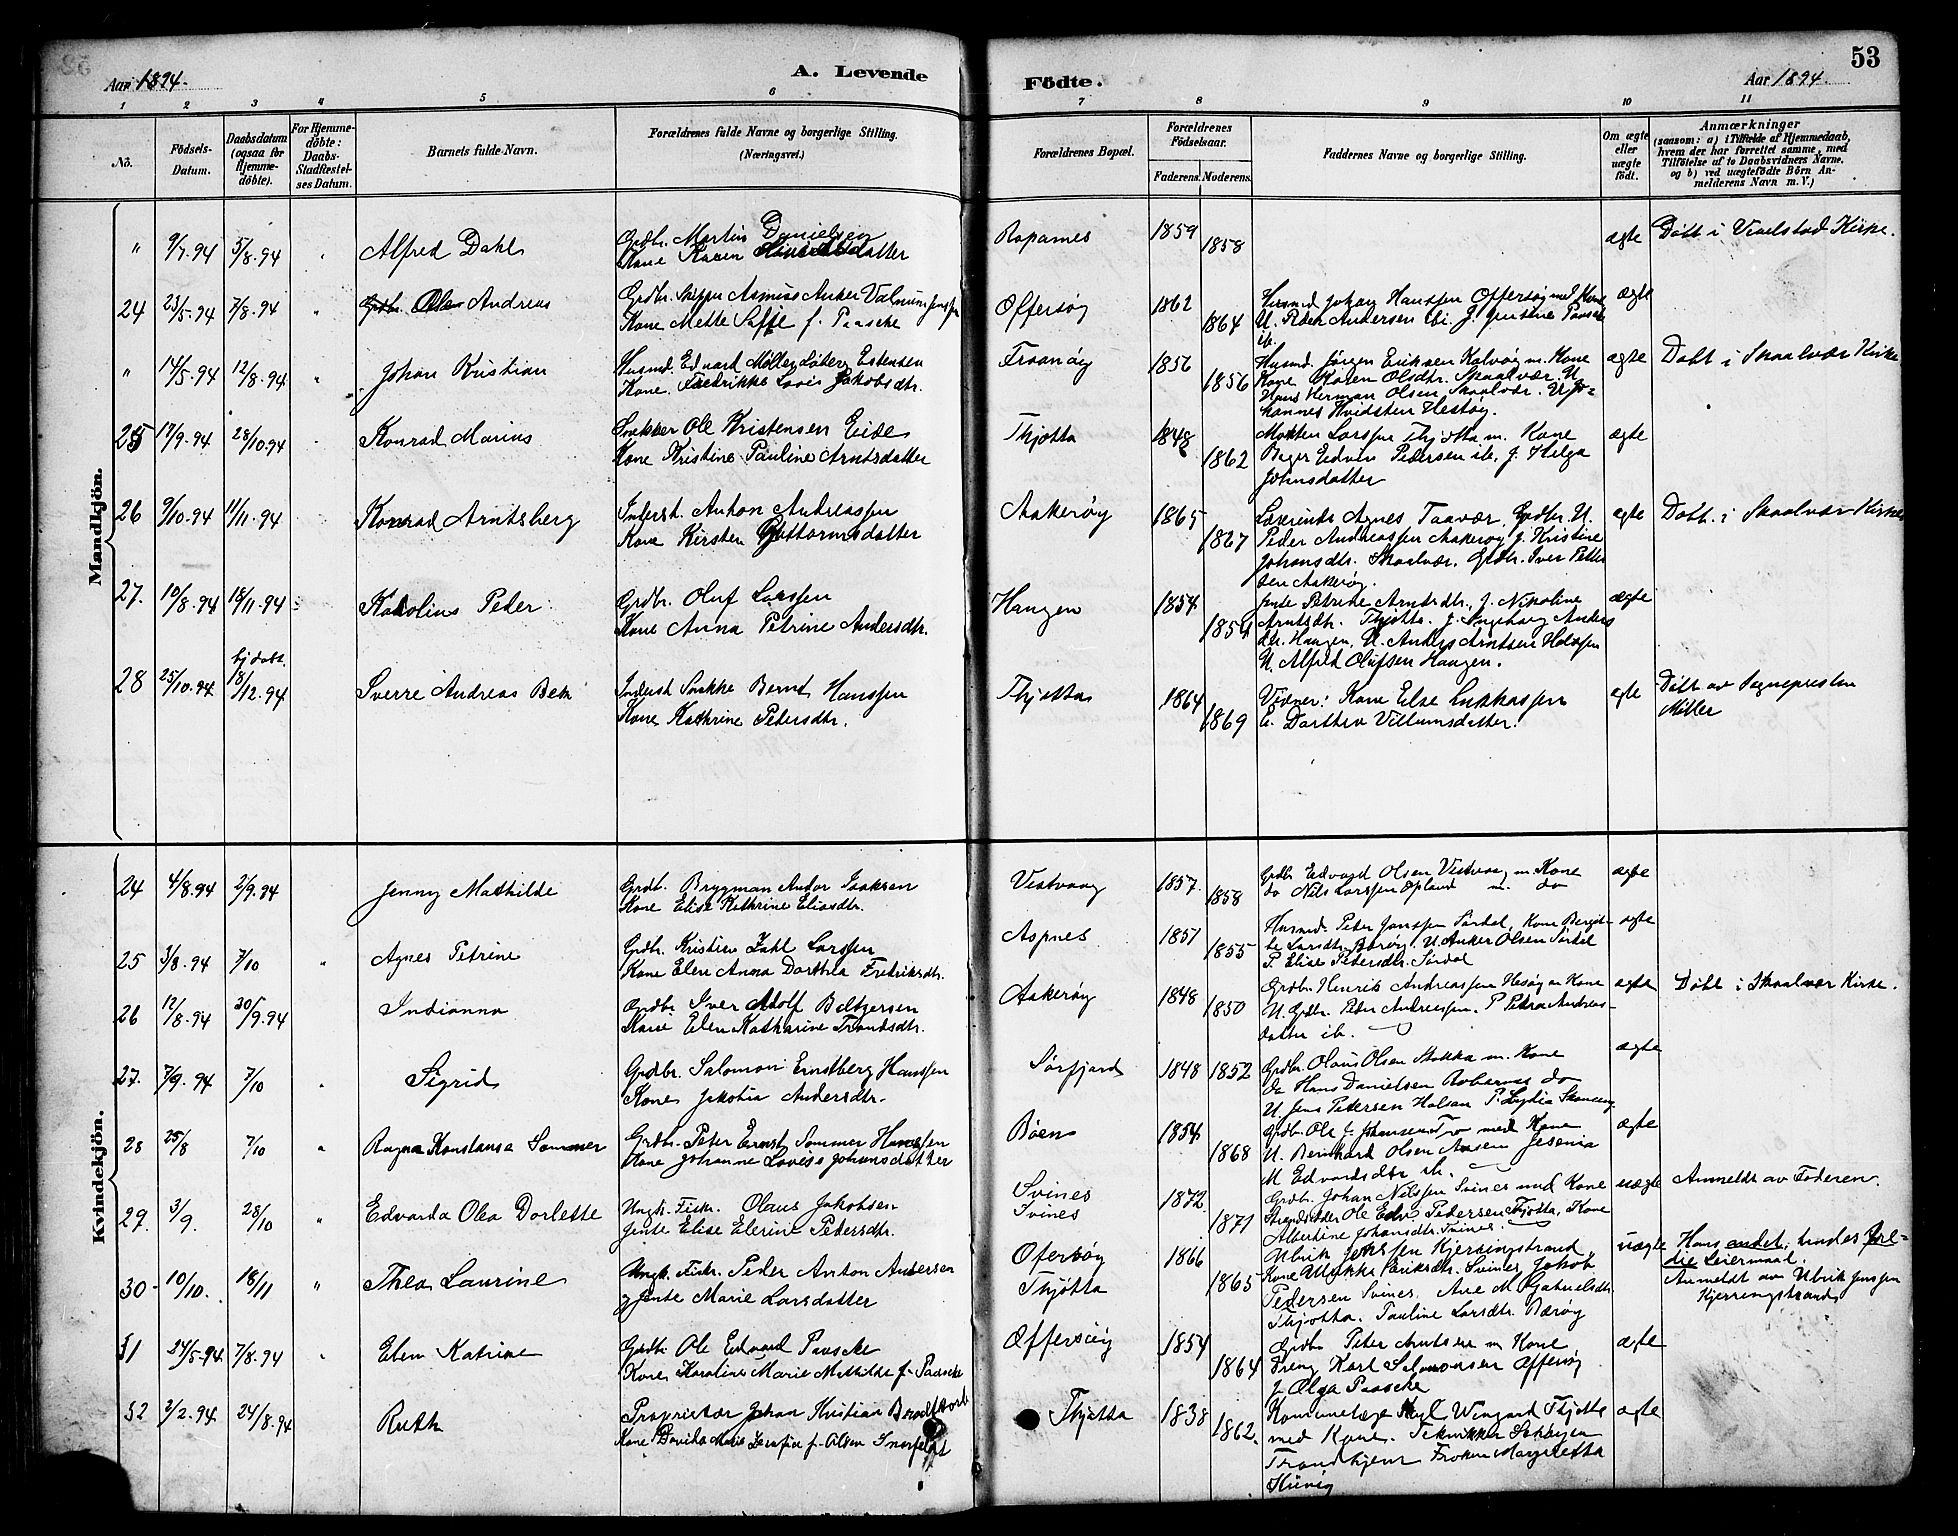 53
Aar 1894.
A. Levende
Födte.
Aar 1894.
1 2 3 4 5 6 7 8 9 10 11
No.
Födsels-Datum.
Daabsdatum (ogsaa for Hjemme-döbte).
For Hjemme-döbte: Daabs-Stadfæstel-ses Datum.
Barnets fulde Navn.
Forældrenes fulde Navne og borgerlige Stilling.
(Næringsvei.)
Forældrenes Bopæl.
Forældrenes Födselsaar.
Faderens. Moderens.
Faddernes Navne og borgerlige Stilling.
Om ægte eller uægte födt.
Anmærkninger
(saasom: a) i Tilfælde af Hjemmedaab,
hvem der har forrettet samme, med
Tilföielse af to Daabsvidners Navne,
og b) ved uægtefödte Börn An-
melderens Navn m. V.)
Mandkjön.
" 9/7.94 5/8.94 Alfred Dahl
Grdbr. Martin Danielsen
Kone Karen
1859 1858 ægte Döbt i Kirke.
24 23/5.94 7/8.94 Andreas
Grdbr. Skipper Asmus Anker
Kone Mette f. Paasche
Offersøy 1862 1864
Husmd Johan Hanssen Offersøy med Kone
U. Peder Andersen ib. J. Paasche
ib.
ægte
" 14/5.94 12/8.94 Johan Kristian
Husmd. Edvard Estensen
Kone Fredrikke Jakobsdtr.
1856 1856
Husmd. Jørgen Eriksen Kalvøy m. Kone
Kone Karen Olsdtr. Skaalvær. U.
Hans Herman Olsen, Skaalvær. U Jo-
hannes Hvidsten Hestøy.
ægte Döbt i Skaalvær Kirke
25 17/9.94 28/10.94 Konrad Marius
Snekker Ole Kristensen Eide
Kone Kristine Pauline Arntsdatter
Thjøtta 1848 1862
Morten Larssen Thjøtta m. Kone
Bager Edvin Pedersen ib, J. Helga
Johnsdatter
ægte
26 9/10.94 11/11.94 Konrad Arntsberg
Inderst. Anton Andreassen
Kone Kirsten Guttormsdatter
Aakerøy 1865 1867
Lærerinde Agnes Taavær, Grdbr. U.
Peder Andreassen Aakerøy J. Kristine
Johansdtr. Skaalvær. Grdbr. Iver Petter
sen Aakerøy.
ægte Döbt. i Skaalvær Kirke
27. 10/8.94 18/11.94 Karolius Peder
Grdbr. Oluf Larssen
Kone Anna Petrine Andersdtr.
Haugen 1854 1854
Jente Petrine Arntsdtr., J. Nikoline
Arntsdtr. Thjøtta. J. Ingeborg Anders
dtr. Haugen, U. Anders Arntsen
U. Alfred Olufsen Haugen.
ægte
28 25/10.94 hj.døbt. 18/12.94 Sverre Andreas
Inderst Snekker Bernt Hanssen
Kone Kathrine Pedersdtr.
Thjøtta 1864 1869
Vidner: Kone Else Lukkassen
E. Dorthea Villumsdatter.
ægte Döbt av Sognepresten
Möller
Kvindekjön.
24 4/8.94 2/9.94 Jenny Mathilde
Grdbr. Brygman Andor Isaksen
Kone Elise Kathrine Eliasdtr.
Vestvaag 1857. 1858
Grdbr Edvard Olsen Vestvaag m Kone
do Nils Larssen Opland m. do
ægte
25 3/8.94 7/10 Agnes Petrine
Grdbr. Kristian Larssen
Kone Elen Anna Dorthea Fredriksdtr.
Aspnes 1851 1855
Husmd. Peter Janssen Sørdal, Kone
Larsdtr. Barøy. U. Anker Olsen Sørdal
P. Elise Pedersdtr. Sørdal
ægte
26 12/8.94 30/9.94 Indianna
Grdbr. Iver Adolf Baltzersen
Kone Elen Katharine Trondsdtr.
Aakerøy 1848 1850
Grdbr. Henrik Andreassen Hesøy m Kone
U. Grdbr. Peder Andreassen. P. Petra Andreas-
datter ib.
ægte Döbt i Skaalvær Kirke.
27. 7/9.94 7/10 Sigrid
Grdbr. Salomon Ernstberg Hanssen
Kone Jakobia Andersdtr.
Sørfjord 1848 1852
Grdbr. Olaus Olsen Stokka m. Kone
do Hans Danielsen do
U. Jens Pedersen P. Lydia
ægte
28 25/8 7/10 Ragna Konstansa Sommer
Grdbr. Peter Ernst Sommer Hanssen
Kone Johanne Lovise Johansdatter
Bøen 1854 1868
Grdbr. Ole J. Johansen med Kone
U. Bernhard Olsen Jesenia
M. Edvardsdtr ib.
ægte
29. 3/9. 28/10 Edvarda Olea Dorlette
Ungk. Fisker. Olaus Jakobsen
Jente Elise Elerine Pedersdtr.
Svines
Svines 1872. 1871
Grdbr. Johan Nilssen Svines med Kone
Strandsidder Ole Edv. Pedersen Tjøtta, Kone
Albertine Johansdtr. Svines.
uægte Anmeldt av Faderen.
30 10/10. 18/11 Thea Laurine
Ungk. Fisker. Peder Anton Andersen
Jente Marie Larsdatter
Offersøy
Thjøtta 1866 1865
Ulrik Jenssen Kjerringstrand
Kone Eriksdtr. Svines, Jakob
Pedersen Svines. Ane M. Gabrielsdtr
Thjøtta. Pauline Larsdtr. Bærøy
uægte Hans andet, hendes tre-
die Leiermaal.
Anmeldt av Ulrik Jenssen
Kjerringstrand
31 24/5.94 7/8.94 Elen Katrine
Grdbr. Ole Edvard Paasche
Kone Karoline Marie Mathilde f. Paasche
Offersøy 1854 1864
Grdbr. Peter Arntsen m Kone
Dreng Karl Salomonsen Offersøy
J. Olga Paasche
ægte
32 2/2.94 24/8.94 Ruth
Proprietær Johan Kristian Brodtkorb
Kone Davida Marie f. Olsen
Thjøtta 1838 1862.
Komunelæge Wingard Thjøtta
med Kone. Tekniker
Trondhjem Frøken Margretta
ægte